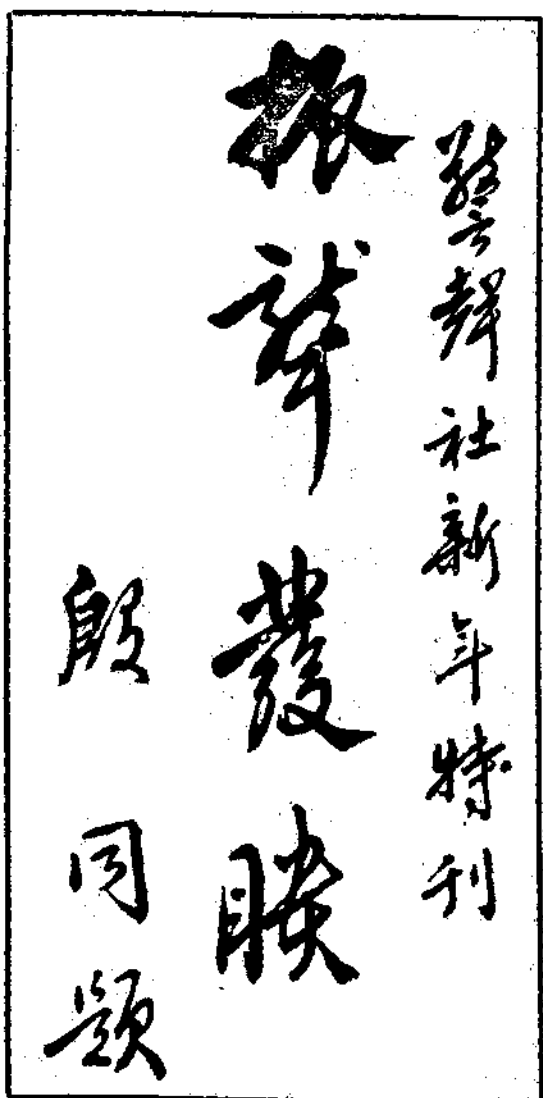 警聲社新年特刊
振聾發瞶
殷同題